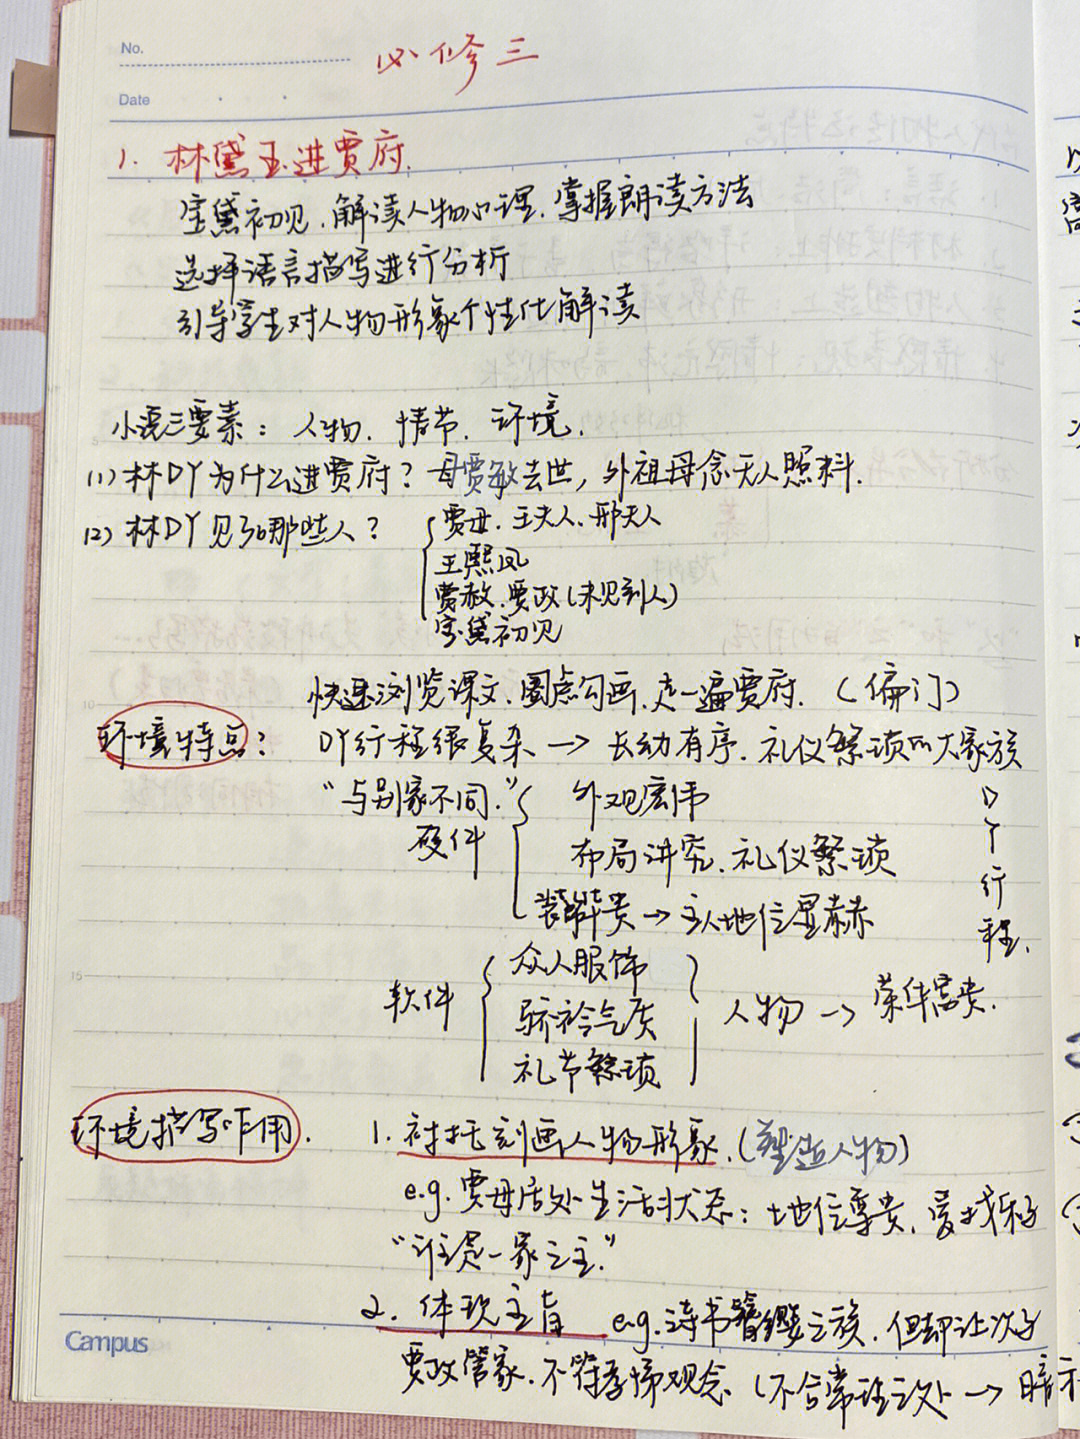 No.
必修三
Date
1. 林黛玉进贾府.
宝黛初见.解读人物心理.掌握朗读方法
选择语言描写进行分析
引导学生对人物形象个性化解读
小说三要素: 人物. 情节. 环境.
(1) 林DY为什么进贾府? 母贾敏去世, 外祖母念无人照料.
(2) 林DY见了哪些人?
贾母. 王夫人. 邢夫人
王熙凤
贾赦.贾政(未见到人)
宝黛初见
快速浏览课文.圈点勾画.走一遍贾府. (偏门)
环境特点: DY行程很复杂 → 长幼有序.礼仪繁琐的大家族
"与别家不同."
硬件
外观宏伟
布局讲究.礼仪繁琐
装饰华贵→主人地位显赫
DY行程.
软件
众人服饰
骄矜气质
礼节繁琐
人物 → 荣华富贵.
环境描写作用.
1. 衬托刻画人物形象.(塑造人物)
e.g. 贾母居处生活状态: 地位尊贵. 爱找乐子
"谁是一家之主."
2. 体现主旨 e.g.诗书簪缨之族. 但却让次子
贾政管家.不符孝悌观念. (不合常理之处 → 暗示
10
15
Campus